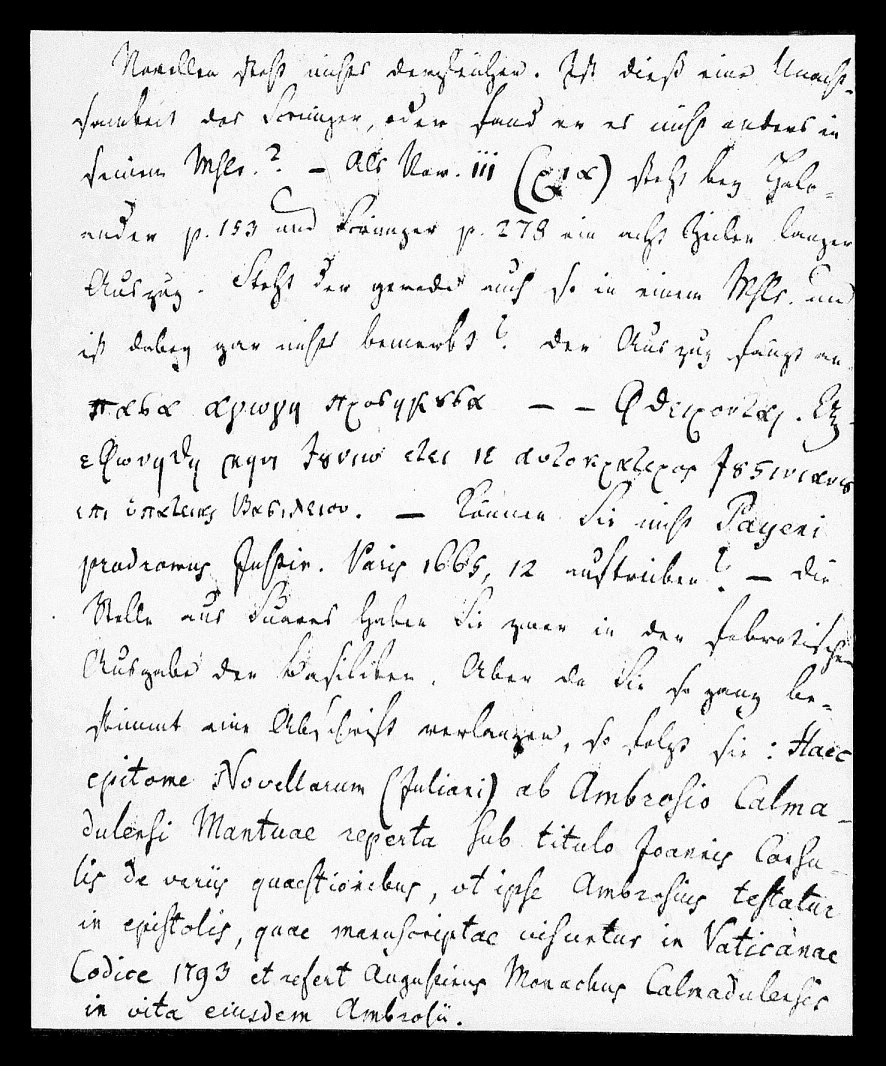 Novellen steht nichts dergleichen. Ist dieß eine Unacht-
samkeit des Scrimger, oder fand er es nicht anders in
seinem Mscr.? – Als Nov. iii (ρια) steht bey Halo-
ander p. 153 und Scrimger p. 278 ein acht Zeilen langer
Auszug. Steht der gerade auch so in einem Mscr. und
ist dabey gar nichts bemerkt? Der Auszug fängt an
πασα αρωγη προσηκουσα – – Φθειρονται.
εφωνηθη μηνι Ιουνιω ετει ιε αυτοκρατερος Ιουστινιανου
επι υπατειας Βασιλειου. – Können Sie nicht Payeni
prodromus Justin. Paris 1665, 12 auftreiben? – Die
Stelle aus Suares haben Sie zwar in der fabrotischen
Ausgabe der Basiliken. Aber da Sie so ganz be-
stimmt eine Abschrift verlangen, so folgt sie: Haec
epitome Novellarum (Juliani) ab Ambrosio Calma-
dulensi Mantuae reperta sub titulo Joannis Consu-
lis de variis quaestionibus, ut ipse Ambrosius testatur
in epistolis, quae manuscriptae visuntur in Vaticanae
Codice 1793 et refert Augustinus Monachus Calmadulensis
in vita eiusdem Ambrosii.